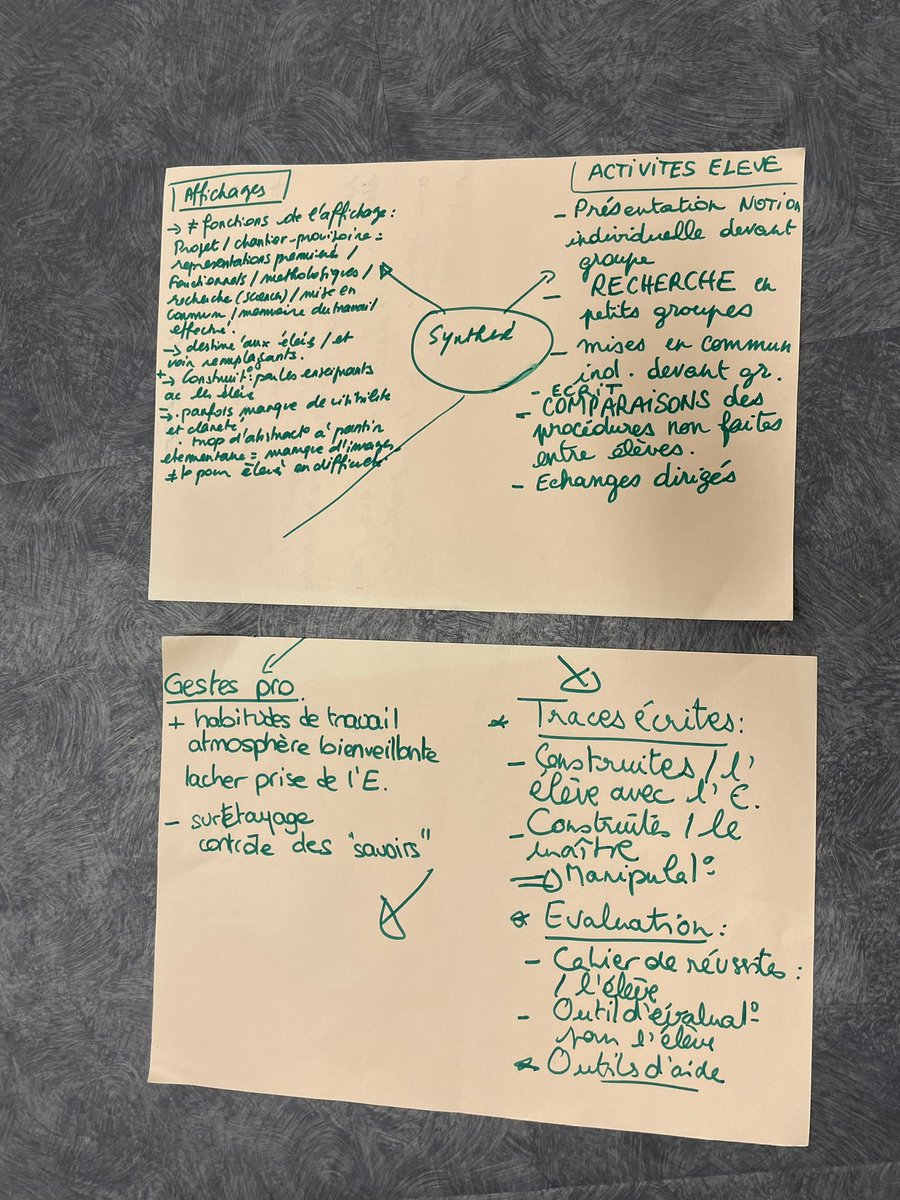 Affichages
→ ≠ fonctions de l'affichage :
Projet / chantier-provisoire =
représentations premières /
fonctionnels / méthologiques /
recherche (sciences) / mise en
commun / mémoire du travail
effectué.
→ destiné aux élèves / et
voir remplaçants.
+→ Construit° par les enseignants
ac les élèves
→ . parfois manque de visibilité
et clarté,
. trop d'abstract° à partir
élémentaire = manque d'images
pour élèves en difficulté
Synthèse
ACTIVITES ELEVE
- Présentation NOTION
individuelle devant
groupe
- RECHERCHE en
petits groupes
- mises en commun
ind. devant gr.
- ECRIT
- COMPARAISONS des
procédures non faites
entre élèves.
- Echanges dirigés
Gestes pro.
+ habitudes de travail
atmosphère bienveillante
lacher prise de l'E.
- surEtayage
contrôle des "savoirs"
* Traces écrites :
- Construites / l'
élève avec l'E.
- Construites / le
maître
⇒ Manipulat°
* Evaluation :
- Cahier de réussites :
/ l'élève
- Outil d'évaluat°
pour l'élève
* Outils d'aide